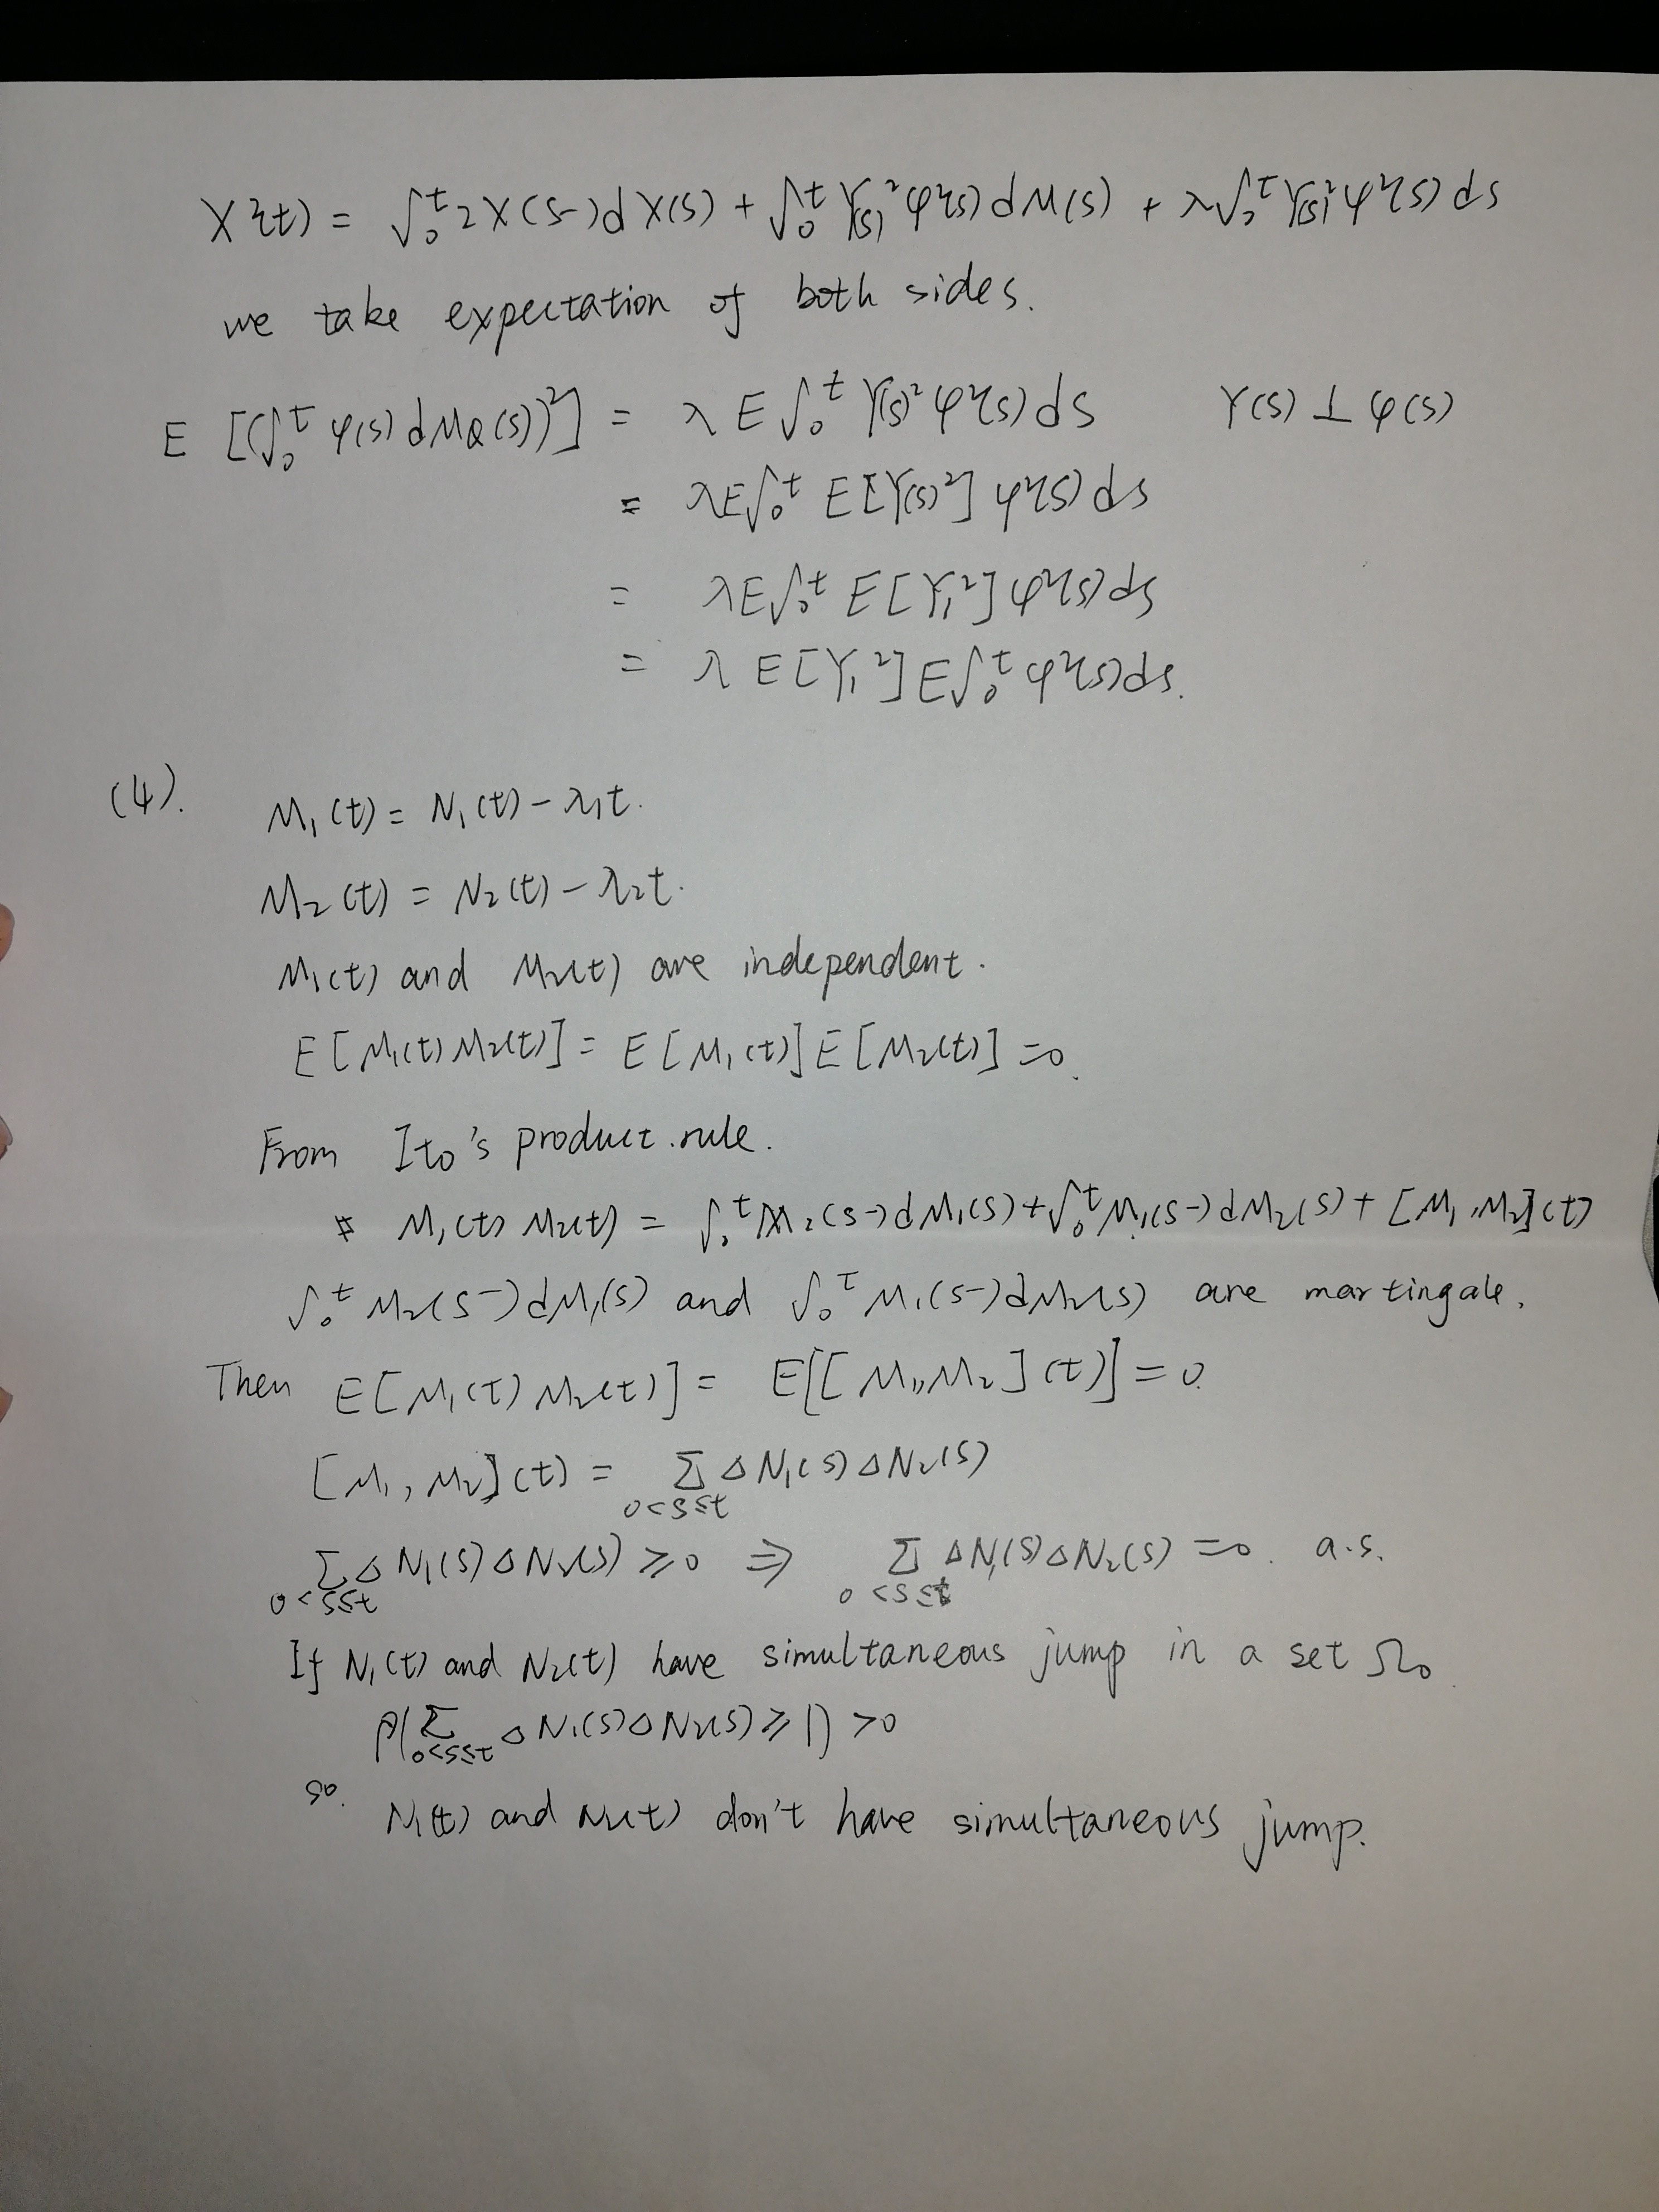 X²(t) = ∫₀ᵗ 2X(s-)dX(s) + ∫₀ᵗ Y(s)²φ²(s)dM(s) + λ∫₀ᵗ Y(s)²φ²(s)ds
we take expectation of both sides.
E[(∫₀ᵗ φ(s)dM_Q(s))²] = λE∫₀ᵗ Y(s)²φ²(s)ds Y(s)⊥φ(s)
= λE∫₀ᵗ E[Y(s)²]φ²(s)ds
= λE∫₀ᵗ E[Y₁²]φ²(s)ds
= λE[Y₁²]E∫₀ᵗ φ²(s)ds.
(4). M₁(t) = N₁(t) - λ₁t.
M₂(t) = N₂(t) - λ₂t.
M₁(t) and M₂(t) are independent.
E[M₁(t)M₂(t)] = E[M₁(t)]E[M₂(t)] = 0.
From Ito's product rule.
M₁(t)M₂(t) = ∫₀ᵗ M₂(s-)dM₁(s) + ∫₀ᵗ M₁(s-)dM₂(s) + [M₁,M₂](t)
∫₀ᵗ M₂(s-)dM₁(s) and ∫₀ᵗ M₁(s-)dM₂(s) are martingale.
Then E[M₁(t)M₂(t)] = E[[M₁,M₂](t)] = 0.
[M₁,M₂](t) = Σ_{0<s≤t} ΔN₁(s)ΔN₂(s)
Σ_{0<s≤t} ΔN₁(s)ΔN₂(s) ≥ 0 ⇒ Σ_{0<s≤t} ΔN₁(s)ΔN₂(s) = 0. a.s.
If N₁(t) and N₂(t) have simultaneous jump in a set Ω₀.
P(Σ_{0<s≤t} ΔN₁(s)ΔN₂(s) ≥ 1) > 0
so. N₁(t) and N₂(t) don't have simultaneous jump.